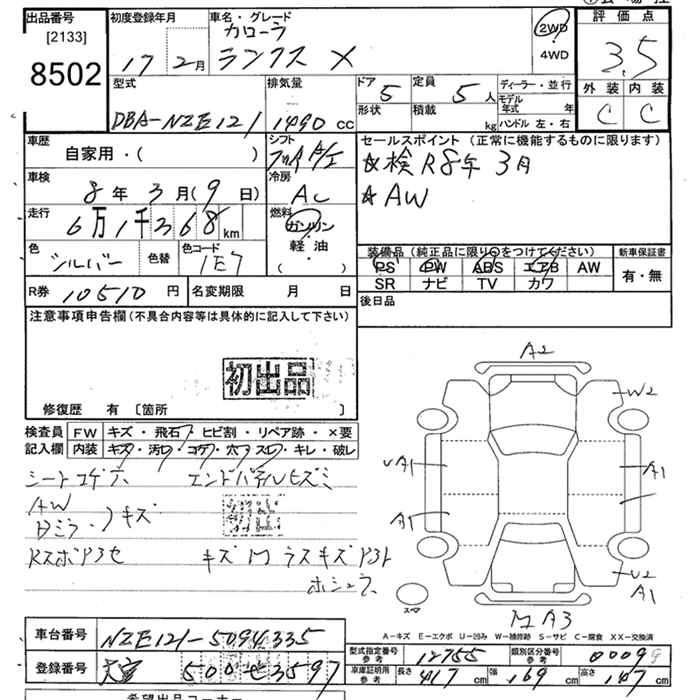 出品番号 初度登録年月 車名・グレード 評価点
[2133] カローラ 2WD
8502 17 2月 ランクス X 4WD 3.5
型式 排気量 ドア 5 定員 5人 ディーラー・並行 外装 内装
DBA-NZE121 1490cc 形状 積載 kg モデル年式 年 C C
ハンドル 左・右
車歴 シフト セールスポイント (正常に機能するものに限ります)
自家用・( ) ☆検R8年3月
車検 冷房 ☆AW
8年 3月(9日) AC
走行 燃料
6万1千368km ガソリン
色 シルバー 色替 色コード 1E7 軽油 装備品(純正品に限り○をつけてください) 新車保証書
(・) PS PW ABS エアB AW 有・無
R券 10510円 名変期限 月 日 SR ナビ TV カワ
後日品
注意事項申告欄(不具合内容等は具体的に記入して下さい)
初出品
修復歴 有 [箇所 ]
A2
W2
検査員 FW キズ・飛石・ヒビ割・リペア跡・×要
記入欄 内装 キズ・汚レ・コゲ・穴・スレ・キレ・破レ
A1 A1
シートコゲ穴
AW キズ
A1
U2
A1
スペア
MA3
A-キズ E-エクボ U-凹み W-補修跡 S-サビ C-腐食 XX-交換済
車台番号 NZE121-5094335
型式指定番号 参考 12755 類別区分番号 参考 0009
登録番号 500 3597 車庫証明用 参考 長さ 417cm 幅 169cm 高さ 147cm
希望出品コーナー